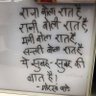 राजा बोला रात है,
रानी बोली रात है,
मंत्री बोला रात है,
संतरी बोला रात है
ये सुबह-सुबह की
बात है।